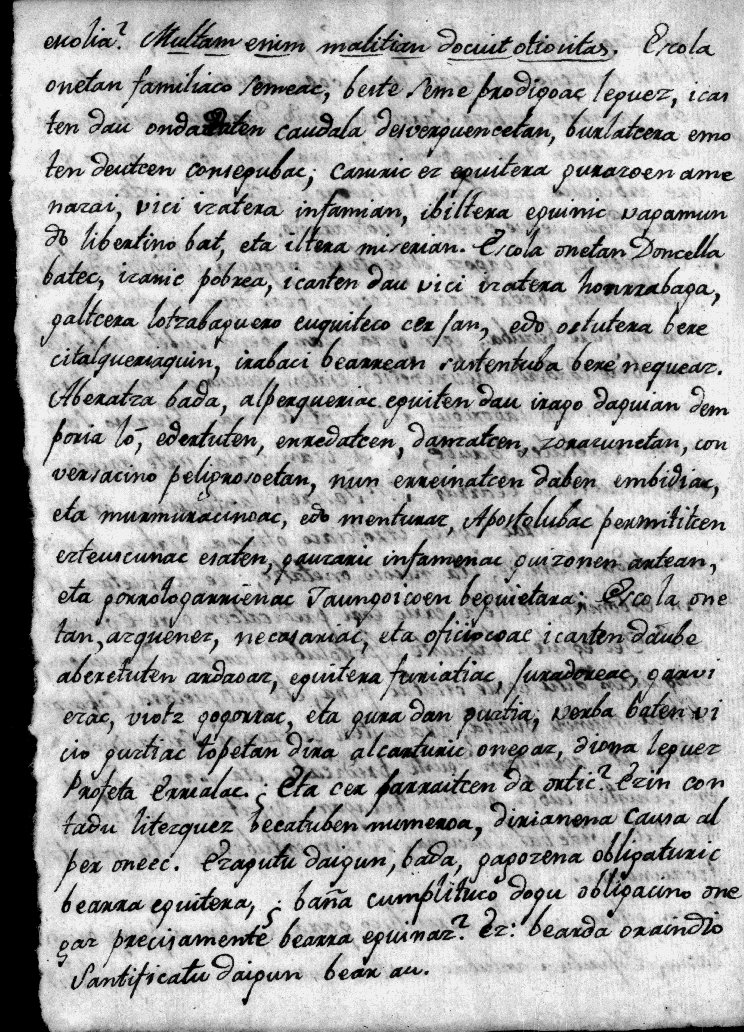 escolia? Multam enim malitian docuit otiositas. Escola
onetan familiaco semeac, beste seme prodigoac leguez, icas
ten dau ondatuten caudala desverguencetan, burlatcera emo
ten deutcen consegubac; casuric ez eguitera gurasoen ame
nazai, vici izatera infamian, ibiltera eguinic vagamun
do libertino bat, eta iltera miserian. Escola onetan Doncella
batec, izanic pobrea, icasten dau vici izatera honrrabaga,
galtcera lotzabaguero euquiteco cer jan, edo ostutera bere
citalqueriaquin, irabaci bearrean sustentuba bere nequeaz.
Aberatza bada, alperqueriac eguiten dau irago daguian dem
poria lo, edertuten, enredatcen, danzatcen, zoracunetan, con
versacino peligrosoetan, nun erreinatcen daben embidiac,
eta murmuracinoac, edo menturaz, Apostolubac permititcen
ezteuscunac esaten, gauzaric infamenac guizonen artean,
eta gorrotogarrienac Jaungoicoen beguietara; Escola one
tan, azquenez, necasariac, eta oficiocoac icasten daube
aberetuten ardaoaz, eguitera furiatiac, juradoreac, garvi
erac, viotz gogorrac, eta gura dan guztia; verba baten vi
cio guztiac topetan dira alcarturic onegaz, diona leguez
Profeta Errialac. ¿Eta cer jarraitcen da ortic? Ezin con
tadu litezquez becatuben numeroa, dirianena causa al
per oneec. Ezagutu daigun, bada, gagozena obligaturic
bearra eguitera, ¿baña cumplituco dogu obligacino one
gaz precisamente bearra eguinaz? Ez: bearda oraindio
Santificatu daigun bear au.